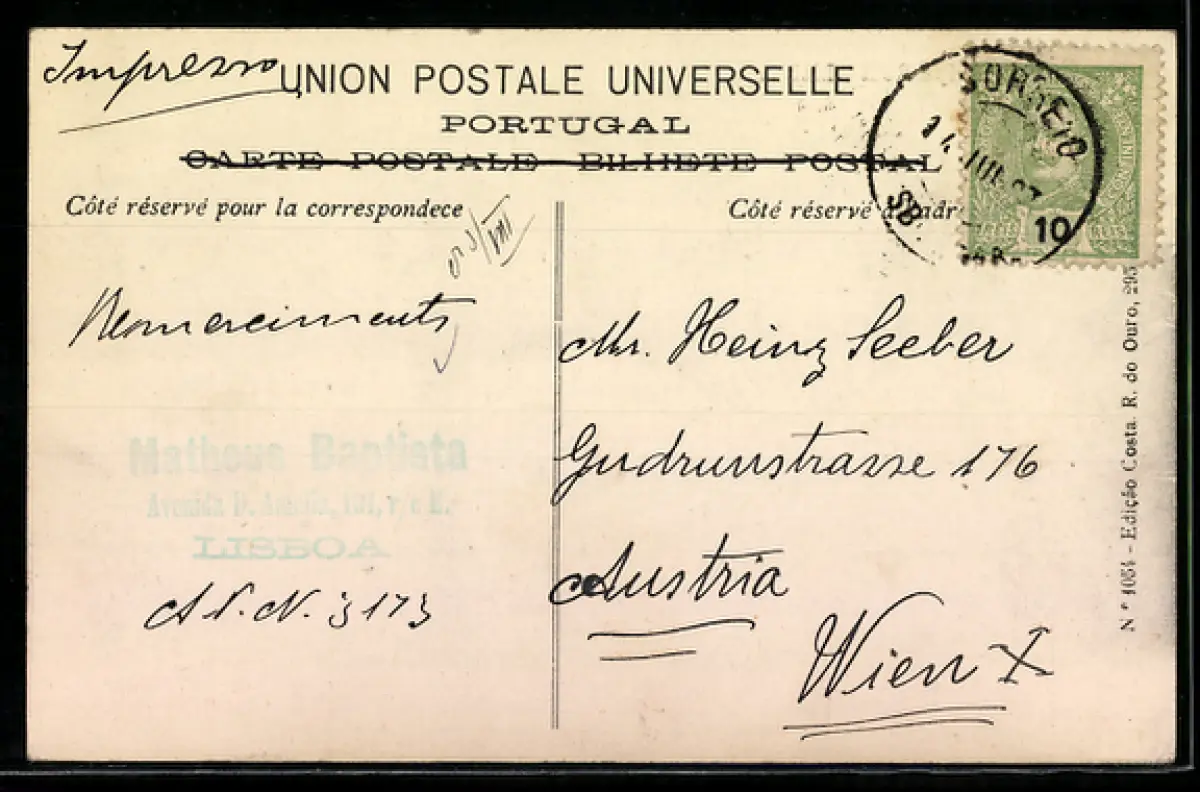 Impresso
UNION POSTALE UNIVERSELLE
PORTUGAL
CARTE POSTALE BILHETE POSTAL
Côté réservé pour la correspondece
Côté réservé
CORREIO
14
10
REIS
VIII
Remerciments
Mr. Heinz Seeber
Gudrunstrasse 176
Austria
Wien X
Matheus Baptista
Avenida D. Amelia, 101, r, c E.
LISBOA
3173
Nº 1054 - Edição Costa. R. do Ouro, 295